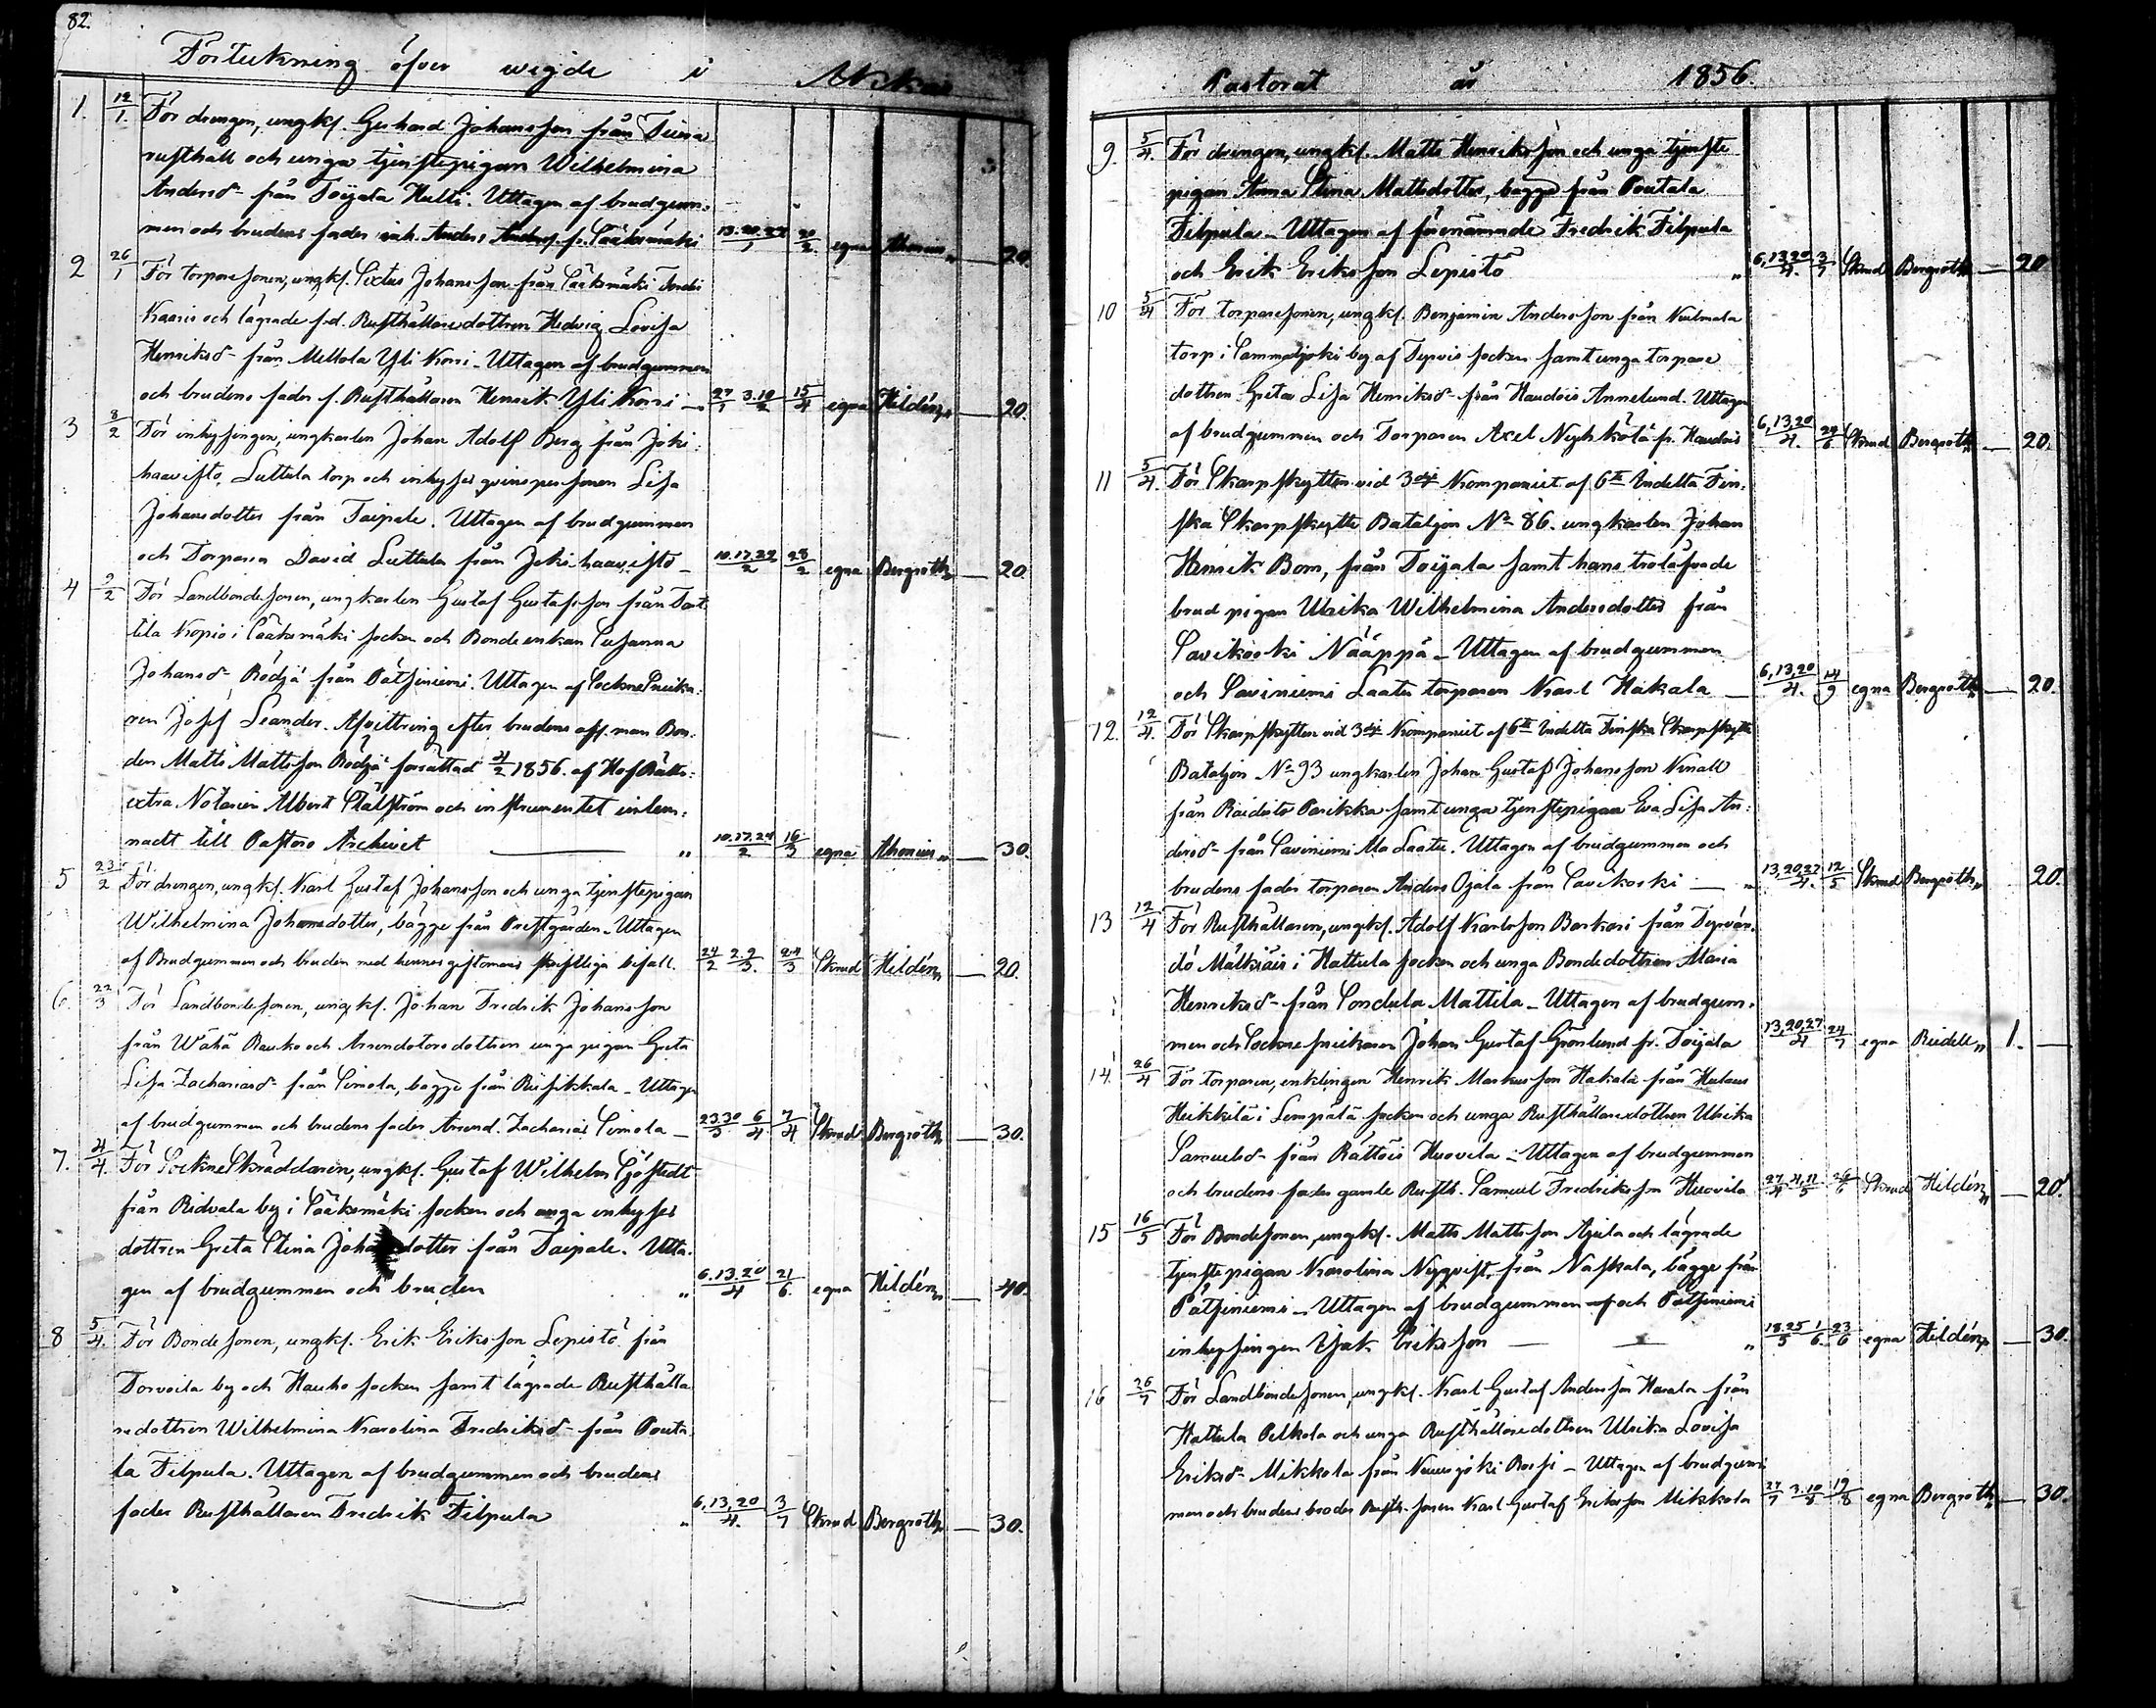 82.
Förteckning öfver wigde i Akkas
1. 12/1. För drengen, ungk. Gerhard Johansson från
rusthåll och unga tjenstepigan Wilhelmina
Andersd:r från Toijala Hulti. Uttagen af brudgum:
men och brudens fader inh. Anders Anderss. fr. Sääksmäki 13.20.27/1 20/2 egna Ahonius „ — 20.
2 26/1 För torparesonen, ungk. Sixtus Johansson från Sääksmäki
Kaaris och lägrade f.d. Rusthållaredottren Hedvig Lovisa
Henriksd:r från Mellola Yli Korri. Uttagen af brudgummen
och brudens fader f. Rusthållaren Henrik Yli Korri — 27/1 3.10/2 15/4 egna Hildén „ — 20.
3 8/2 För inhysingen, ungkarlen Johan Adolf Berg från Joki:
haavisto, Luttula torp och inhyses qvinspersonen Lisa
Johansdotter från Taipale. Uttagen af brudgummen
och Torparen David Luttula från Jokihaavisto — 10.17.24/2 28/2 egna Bergroth „ — 20.
4 9/2 För Landbondesonen, ungkarlen Gustaf Gustafsson från Tart:
tila Kopio i Sääksmäki socken och Bondeenkan Susanna
Johansd:r Rödjä från Pätsiniemi. Uttagen af Sockne
ren Josef Leander. Afvittring efter brudens afl. man Bon:
den Matts Mattsson Rödjä förrättad 4/2 1856. af HofRätts:
extra Notarien Albert Stålström och instrumentet inlem:
nadt till Pastors Archivet — „ 10.17.24/2 16/3 egna Ahonius „ — 30.
5 23/2 För drengen, ungk. Karl Gustaf Johansson och unga tjenstepigan
Wilhelmina Johansdotter, bägge från Prestgården. Uttagen
af Brudgummen och bruden med hennes giftomans skriftliga bifall. 24/2 2.9/3. 24/3 Skrud Hildén „ — 20.
6. 22/3 För Landbondesonen, ungk. Johan Fredrik Johansson
från Wähä Rauko och Arrendators dottren unga pigan Greta
Lisa Zachariasd:r från Simola, bägge från Riisikkala — Uttagen
af brudgummen och brudens fader Arrend. Zacharias Simola — 23.30/3 6/4 7/4 Skrud Bergroth „ — 30.
7. 4/4 För SockneSkräddaren, ungk. Gustaf Wilhelm Sjöstedt
från Ridvala by i Sääksmäki socken och unga inhyses
dottren Greta Stina Johansdotter från Taipale. Utta:
gen af brudgummen och bruden „ 6.13.20/4 21/6. egna Hildén „ — 40.
8 5/4. För Bondesonen, ungk. Erik Eriksson Lepistö från
Torvoila by och Hauho socken samt lägrade Rusthålla
redottren Wilhelmina Karolina Fredriksd:r från Pouta
la Filpula. Uttagen af brudgummen och brudens
fader Rusthållaren Fredrik Filpula „ 6,13,20/4. 3/7 Skrud Bergroth „ — 30.
Pastorat år 1856.
9. 5/4. För drengen, ungk. Matts Henriksson och unga tjenste
pigan Anna Stina Mattsdotter, bägge från Poutala
Filpula — Uttagen af förenämnde Fredrik Filpula
och Erik Eriksson Lepistö „ 6,13,20/4. 3/7 Skrud Bergroth „ — 20
10 5/4 För torparesonen, ungk. Benjamin Andersson från
torp i Sammaljoki by af Tyrvis socken samt unga torpare
dottren Greta Lisa Henriksd:r från Haudois Annelund. Uttagen
af brudgummen och Torparen Axel Nyykkölä fr. Haudois 6,13,20/4. 29/6 Skrud Bergroth „ — 20.
11 5/4. För Skarpskytten vid 3dje Kompaniet af 6te Indelta Fin:
ska Skarpskytte Bataljon No 86. ungkarlen Johan
Henrik Bom, från Toijala samt hans trolofvade
brud pigan Ulrika Wilhelmina Andersdotter från
Savikoski Nääppä — Uttagen af brudgummen
och Saviniemi Laatu torparen Karl Hakala — 6,13,20/4. 14/9 egna Bergroth „ — 20.
12. 12/4. För Skarpskytten vid 3dje Kompaniet af 6te Indelta Finska Skarpskytte
Bataljon No 93 ungkarlen Johan Gustaf Johansson Knall
från Raidisto Parikka samt unga tjenstepigan Eva Lisa An:
dersd:r från Saviniemi Ala Laatu. Uttagen af brudgummen och
brudens fader torparen Anders Ojala från Savikoski — „ 13,20,27/4. 12/5 Skrud Bergroth „ 20.
13 12/4 För Rusthållaren, ungk. Adolf Karlsson Barkari från Tyrvän:
tö Mälkiäis i Hattula socken och unga Bondedottren Maria
Henriksd:r från Sondula Mattila — Uttagen af brudgum:
men och Johan Gustaf Grönlund fr. Toijala 13,20,27/4 24/7 egna Riidell „ 1. —
14. 26/4 För torparen, enklingen Henrik Markusson Hakala från Hulaus
Heikkilä i Lempälä socken och unga Rusthållaredottren Ulrika
Samuelsd:r från Rättöis Huovila — Uttagen af brudgummen
och brudens fader gamle Rusth. Samuel Fredriksson Huovila 27/4 4,11/5 24/6 Skrud Hildén „ — 20.
15 16/5 För Bondesonen, ungk. Matts Mattsson Ajula och lägrade
tjenstepigan Karolina Nyqvist, från Naskala, bägge från
Pätsiniemi — Uttagen af brudgummen och Pätsiniemi
inhysingen Isak Eriksson — „ 18.25/5 1/6. 23/6 egna Hildén „ — 30.
16 26/7 För Landbondesonen, ungk. Karl Gustaf Andersson Harala från
Hattula Pelkola och unga Rusthållaredottren Ulrika Lovisa
Eriksd:r Mikkola från Nuusjoki Rossi — Uttagen af brudgum
men och brudens broder Rusth. sonen Karl Gustaf Eriksson Mikkola 27/7 3.10/8 19/8 egna Bergroth „ — 30.